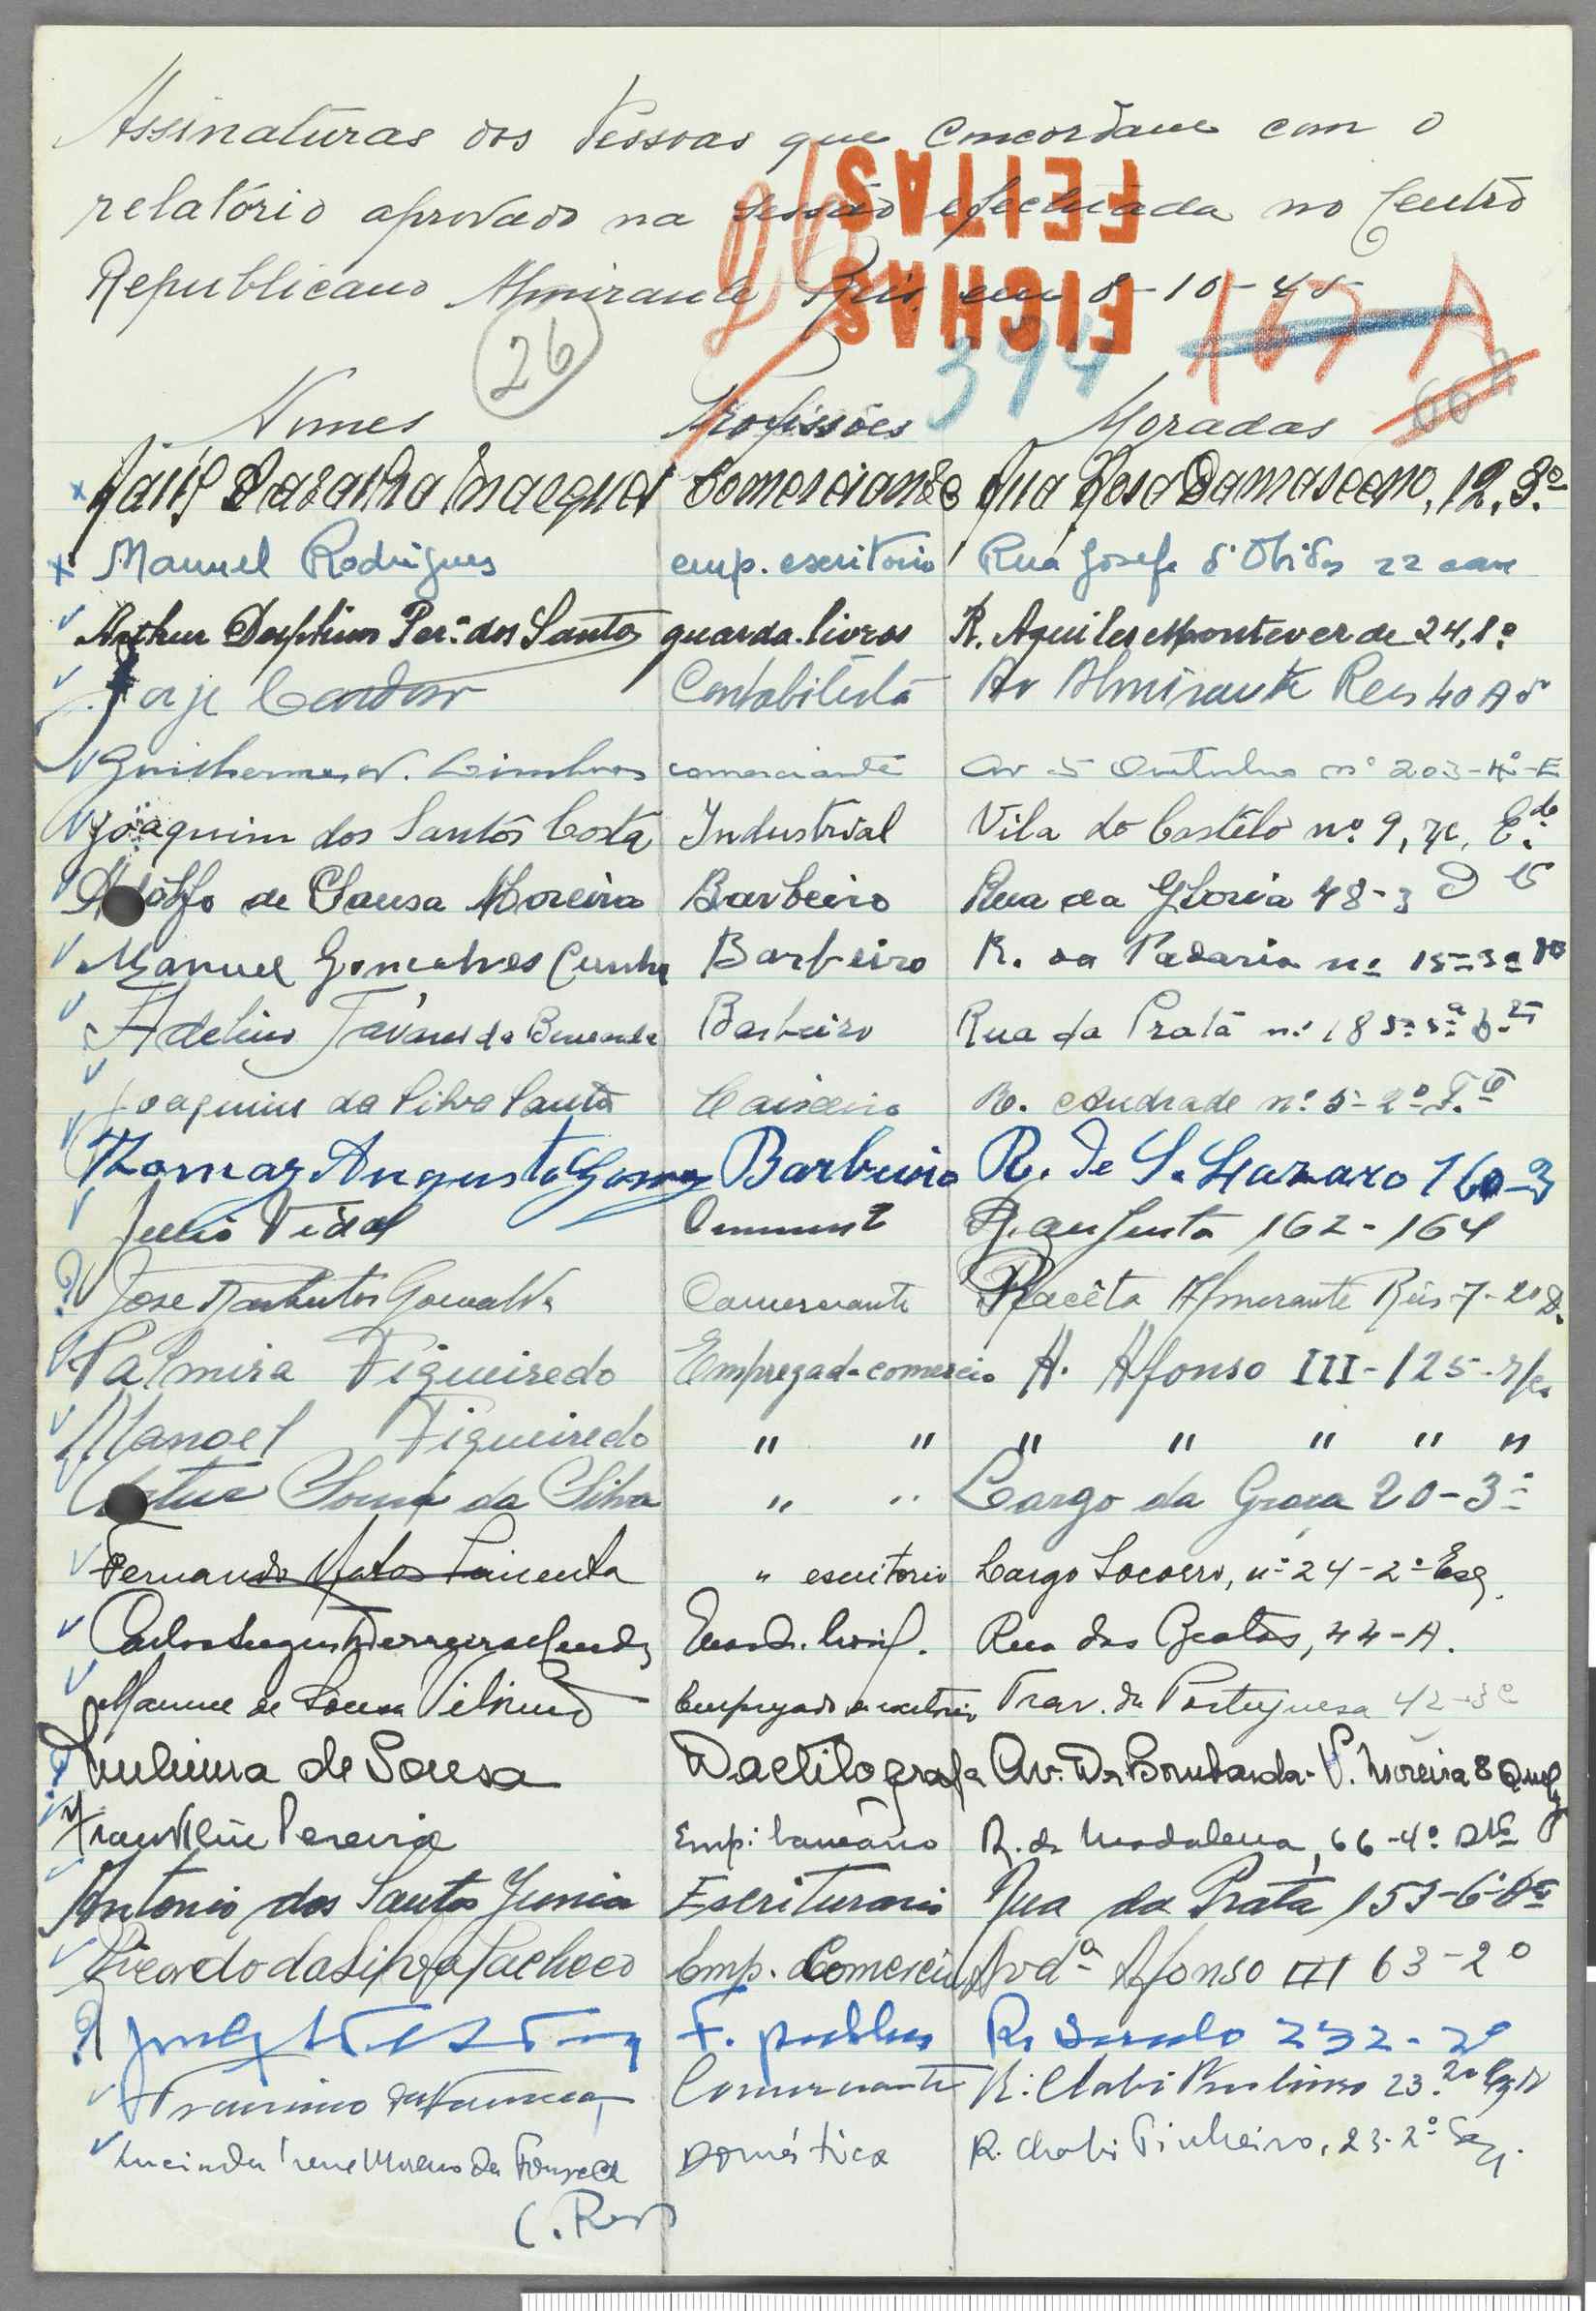 Assinaturas das Pessoas que Concordam com o
relatório aprovado na sessão efectuada no Centro
Republicano Almirante Reis em 8-10-45
FICHAS
FEITAS
26
394
167 A
Nomes Profissões Moradas
Comerciante Rua Rosa Damasceno, 12, 3.º
Manuel Rodrigues emp. escritorio Rua Josefa d'Obidos 22 cave
Arthur Delphim Per.ª dos Santos guarda-livros R. Aquiles Monteverde 24, 1º
Jorje Cardoso Contabilista Av Almirante Reis 40 A 5º
Guilherme comerciante Av 5 Outubro nº 203-4º-E
Joaquim dos Santos Costa Industrial Vila do Castelo nº 9, r/c, E.do
Adolfo de Sousa Moreira Barbeiro Rua da Gloria 48-3 D
Manuel Gonçalves Cunha Barbeiro R. da Padaria nº 15-3º
Adelino Tavares da Barbeiro Rua da Prata nº 185-5º
Joaquim da Silva Santos Caixeiro R. Andrade nº 5-2º F.te
Thomaz Augusto Gomes Barbeiro R. de S. Lazaro 160-3
Julio Vidal R. Augusta 162-164
Jose Gonçalves Comerciante Praceta Almirante Reis-7-2º D.
Palmira Figueiredo Empregada comercio A. Afonso III-125-r/c
Manoel Figueiredo " " " " " " "
Artur Sousa da Silva " " Largo da Graça 20-3º
Fernando Matos Pimenta " escritorio Largo Socorro, nº 24-2º Esq.
Carlos Augusto Ferreira Mendes Rua das Beatas, 44-A.
Manuel de Sousa Empregado escritório Trav. da Portuguesa 42-3º
de Sousa Dactilografa Av. Dr. Bombarda-V. Moreira 8
Franklin Pereira Emp. bancário R. da Madalena, 66-4º Dto
Antonio dos Santos Junior Escriturario Rua da Prata 153-6º
Ricardo da Silva Pacheco Emp. Comercio Avdª Afonso III 63-2º
F. publico R. 232-2º
Comerciante R. Chabi Pinheiro 23-2º
Lucinda Irene Moreno da Fonseca Doméstica R. Chabi Pinheiro, 23-2º Esq.